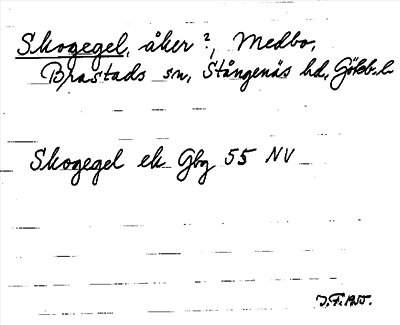 Skogegel, åker?, Medbo,
Brastads sn, Stångenäs hd, Göteb. l.
Skogegel ek Gbg 55 NV